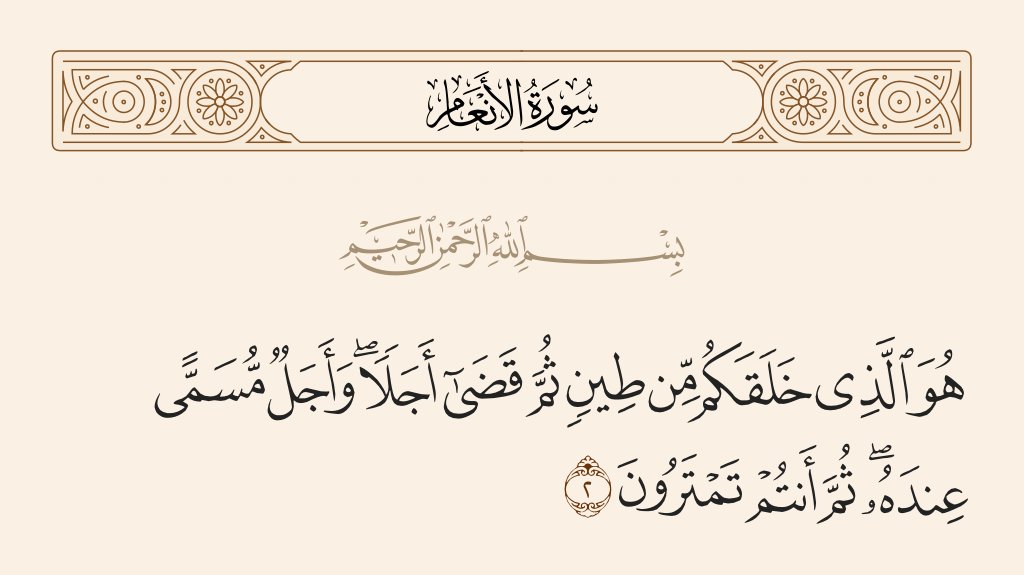 سُورَةُ الأَنْعَامِ
بِسْمِ ٱللَّهِ ٱلرَّحْمَٰنِ ٱلرَّحِيمِ
هُوَ ٱلَّذِى خَلَقَكُم مِّن طِينٍ ثُمَّ قَضَىٰٓ أَجَلًا ۖ وَأَجَلٌ مُّسَمًّى
عِندَهُۥ ۖ ثُمَّ أَنتُمْ تَمْتَرُونَ ٢